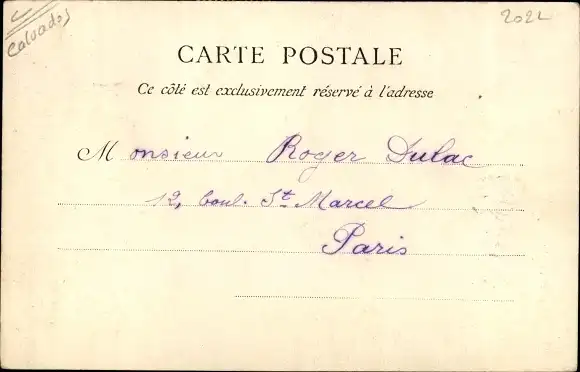 Calvados
2022
CARTE POSTALE
Ce côté est exclusivement réservé à l'adresse
Monsieur Roger Dulac
12, boul. St Marcel
Paris